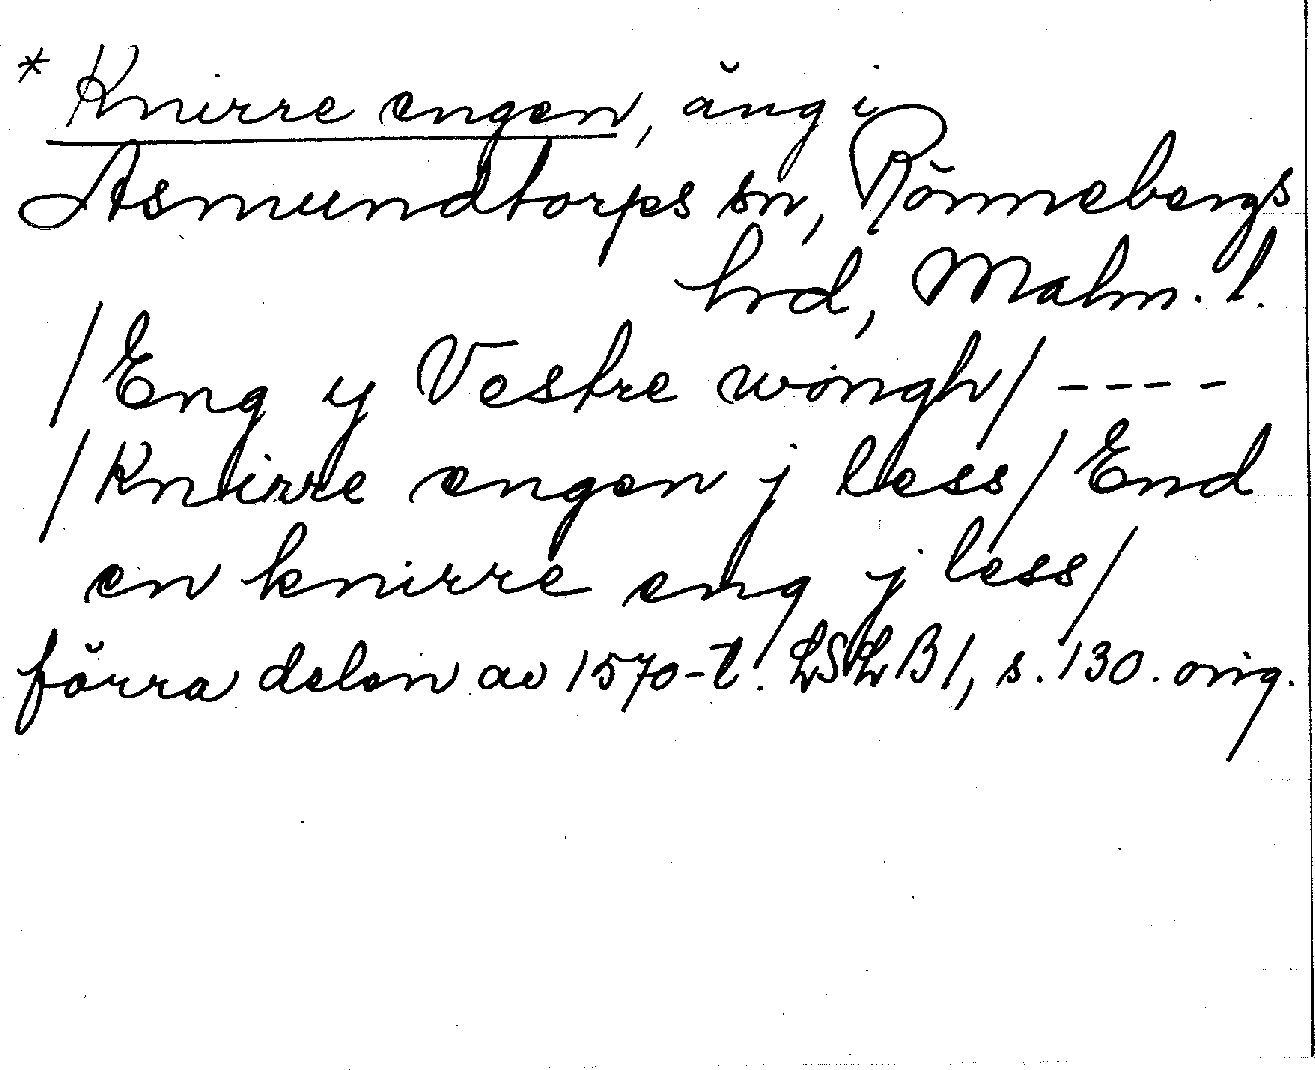 * Knirre engen, äng i
Asmundtorps sn, Rönnebergs
hrd, Malm. l.
/Eng y Vestre wongh/ ----
/Knirre engen j less/ End
en knirre eng j less/
förra delen av 1570-t. LSLB1, s. 130. orig.